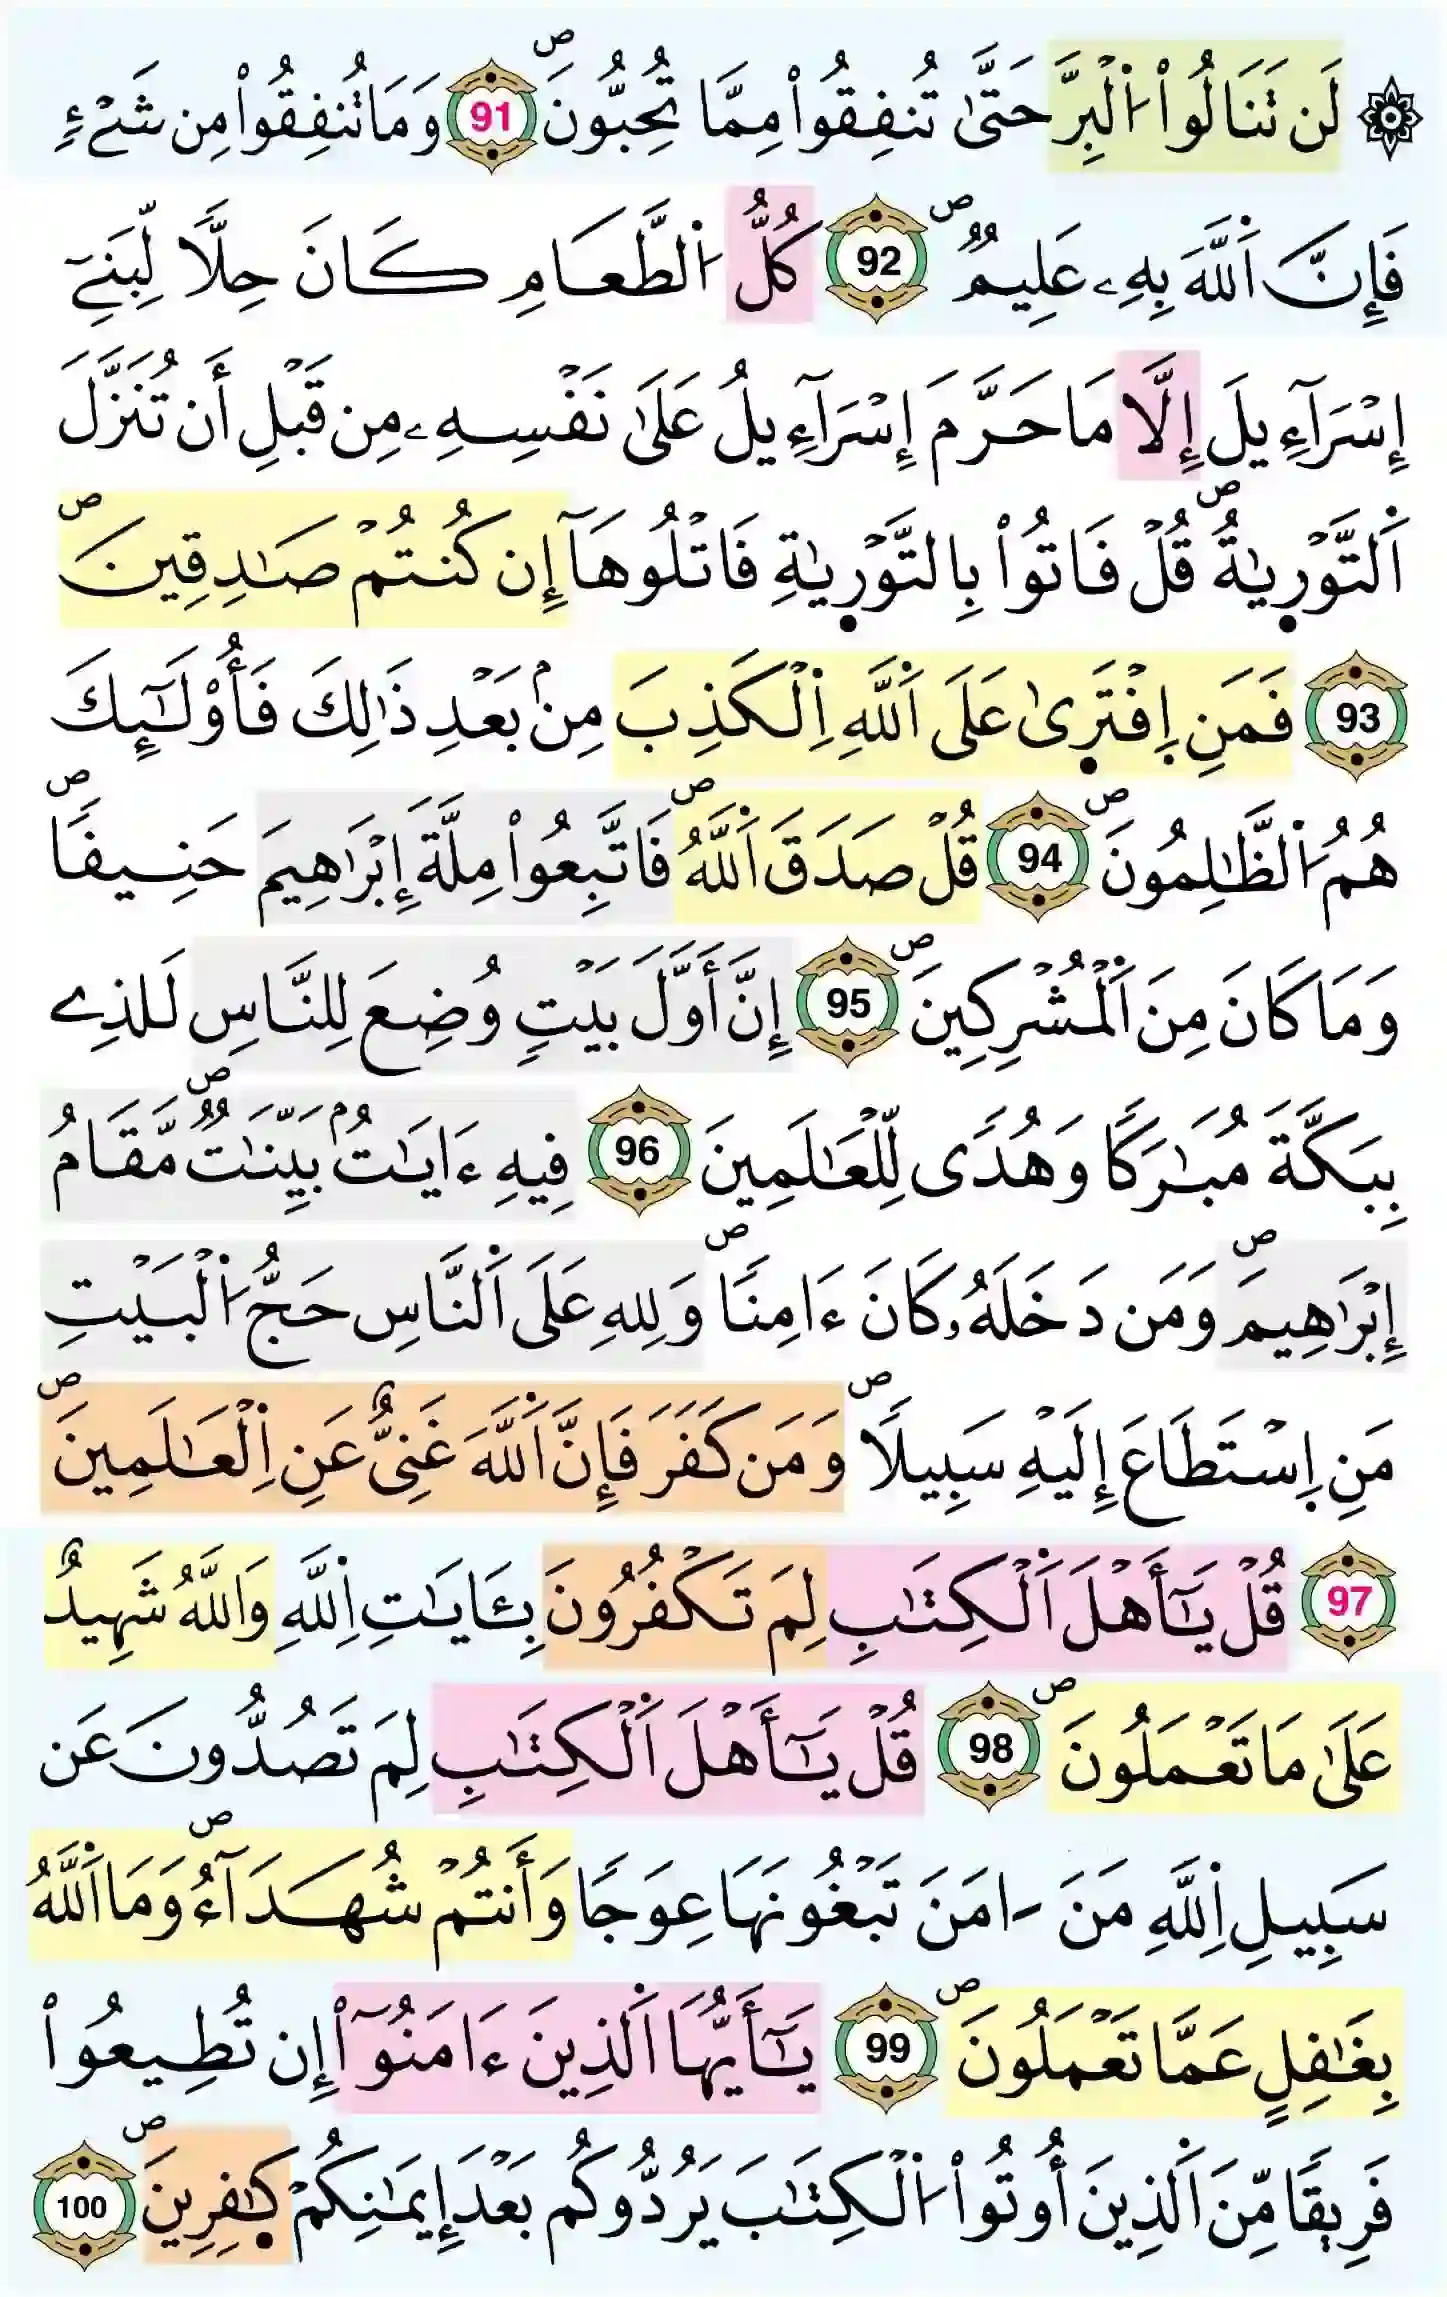 ۞ لَن تَنَالُواْ اُ۬لْبِرَّ حَتَّىٰ تُنفِقُواْ مِمَّا تُحِبُّونَۖ 91 وَمَا تُنفِقُواْ مِن شَےْءٖ
فَإِنَّ اَ۬للَّهَ بِهِۦ عَلِيمٞۖ 92 كُلُّ اُ۬لطَّعَامِ كَانَ حِلّٗا لِّبَنِےٓ
إِسْرَآءِيلَ إِلَّا مَا حَرَّمَ إِسْرَآءِيلُ عَلَىٰ نَفْسِهِۦ مِن قَبْلِ أَن تُنَزَّلَ
اَ۬لتَّوْر۪يٰةُۖ قُلْ فَاتُواْ بِالتَّوْر۪يٰةِ فَاتْلُوهَآ إِن كُنتُمْ صَٰدِقِينَۖ
93 فَمَنِ اِ۪فْتَر۪يٰ عَلَى اَ۬للَّهِ اِ۬لْكَذِبَ مِنۢ بَعْدِ ذَٰلِكَ فَأُوْلَٰٓئِكَ
هُمُ اُ۬لظَّٰلِمُونَۖ 94 قُلْ صَدَقَ اَ۬للَّهُۖ فَاتَّبِعُواْ مِلَّةَ إِبْرَٰهِيمَ حَنِيفٗاۖ
وَمَا كَانَ مِنَ اَ۬لْمُشْرِكِينَۖ 95 إِنَّ أَوَّلَ بَيْتٖ وُضِعَ لِلنَّاسِ لَلذِے
بِبَكَّةَ مُبَٰرَكٗا وَهُدٗى لِّلْعَٰلَمِينَ 96 فِيهِ ءَايَٰتُۢ بَيِّنَٰتٞۖ مَّقَامُ
إِبْرَٰهِيمَۖ وَمَن دَخَلَهُۥ كَانَ ءَامِنٗاۖ وَلِلهِ عَلَى اَ۬لنَّاسِ حَجُّ اُ۬لْبَيْتِ
مَنِ اِ۪سْتَطَاعَ إِلَيْهِ سَبِيلٗاۖ وَمَن كَفَرَ فَإِنَّ اَ۬للَّهَ غَنِىٌّ عَنِ اِ۬لْعَٰلَمِينَۖ
97 قُلْ يَٰٓأَهْلَ اَ۬لْكِتَٰبِ لِمَ تَكْفُرُونَ بِـَٔايَٰتِ اِ۬للَّهِ وَاللَّهُ شَهِيدٌ
عَلَىٰ مَا تَعْمَلُونَۖ 98 قُلْ يَٰٓأَهْلَ اَ۬لْكِتَٰبِ لِمَ تَصُدُّونَ عَن
سَبِيلِ اِ۬للَّهِ مَنَ اٰمَنَ تَبْغُونَهَا عِوَجٗا وَأَنتُمْ شُهَدَآءُۖ وَمَا اَ۬للَّهُ
بِغَٰفِلٍ عَمَّا تَعْمَلُونَۖ 99 يَٰٓأَيُّهَا اَ۬لذِينَ ءَامَنُوٓاْ إِن تُطِيعُواْ
فَرِيقٗا مِّنَ اَ۬لذِينَ أُوتُواْ اُ۬لْكِتَٰبَ يَرُدُّوكُم بَعْدَ إِيمَٰنِكُمْ كٰ۪فِرِينَۖ 100